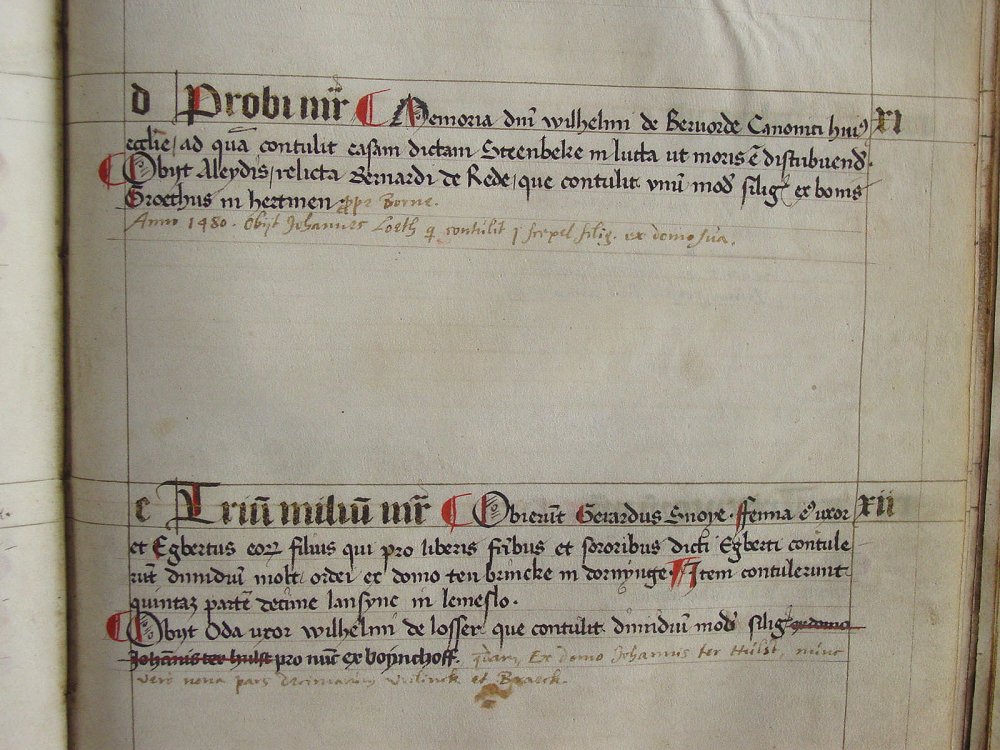 d Probi mr̄ Memoria dni wilhelmi de Bervorde Canonici hui⁹ XI
ecclie, ad quā contulit casam dictam Steenbeke in lutta ut moris ē distribuend.
Obijt Aleydis, relicta Bernardi de Rede, que contulit vnū mod silig ex bonis
Groethus in hertmen prope Borne.
Anno 1480. Obijt Johannes Loeth q contulit j scepel silig. ex domo sua.
e Triū miliū mr̄ Obierūt Gerardus Snoye. ffenna e⁹ uxor xii
et Egbertus eorꝝ filius qui pro liberis fr̄ibus et sororibus dicti Egberti contule
rūt dimidiū molt ordei ex domo ten brincke in dornynge. Item contulerunt
quintaʒ partē decime lansync in lemeslo.
Obijt Oda uxor wilhelmi de losser que contulit dimidiū mod silig ex domo
Johānis ter hulst pro nūc ex boynchoff. Ex domo Johannis ter Hülst, nunc
vero nona pars decimarum et Braeck.